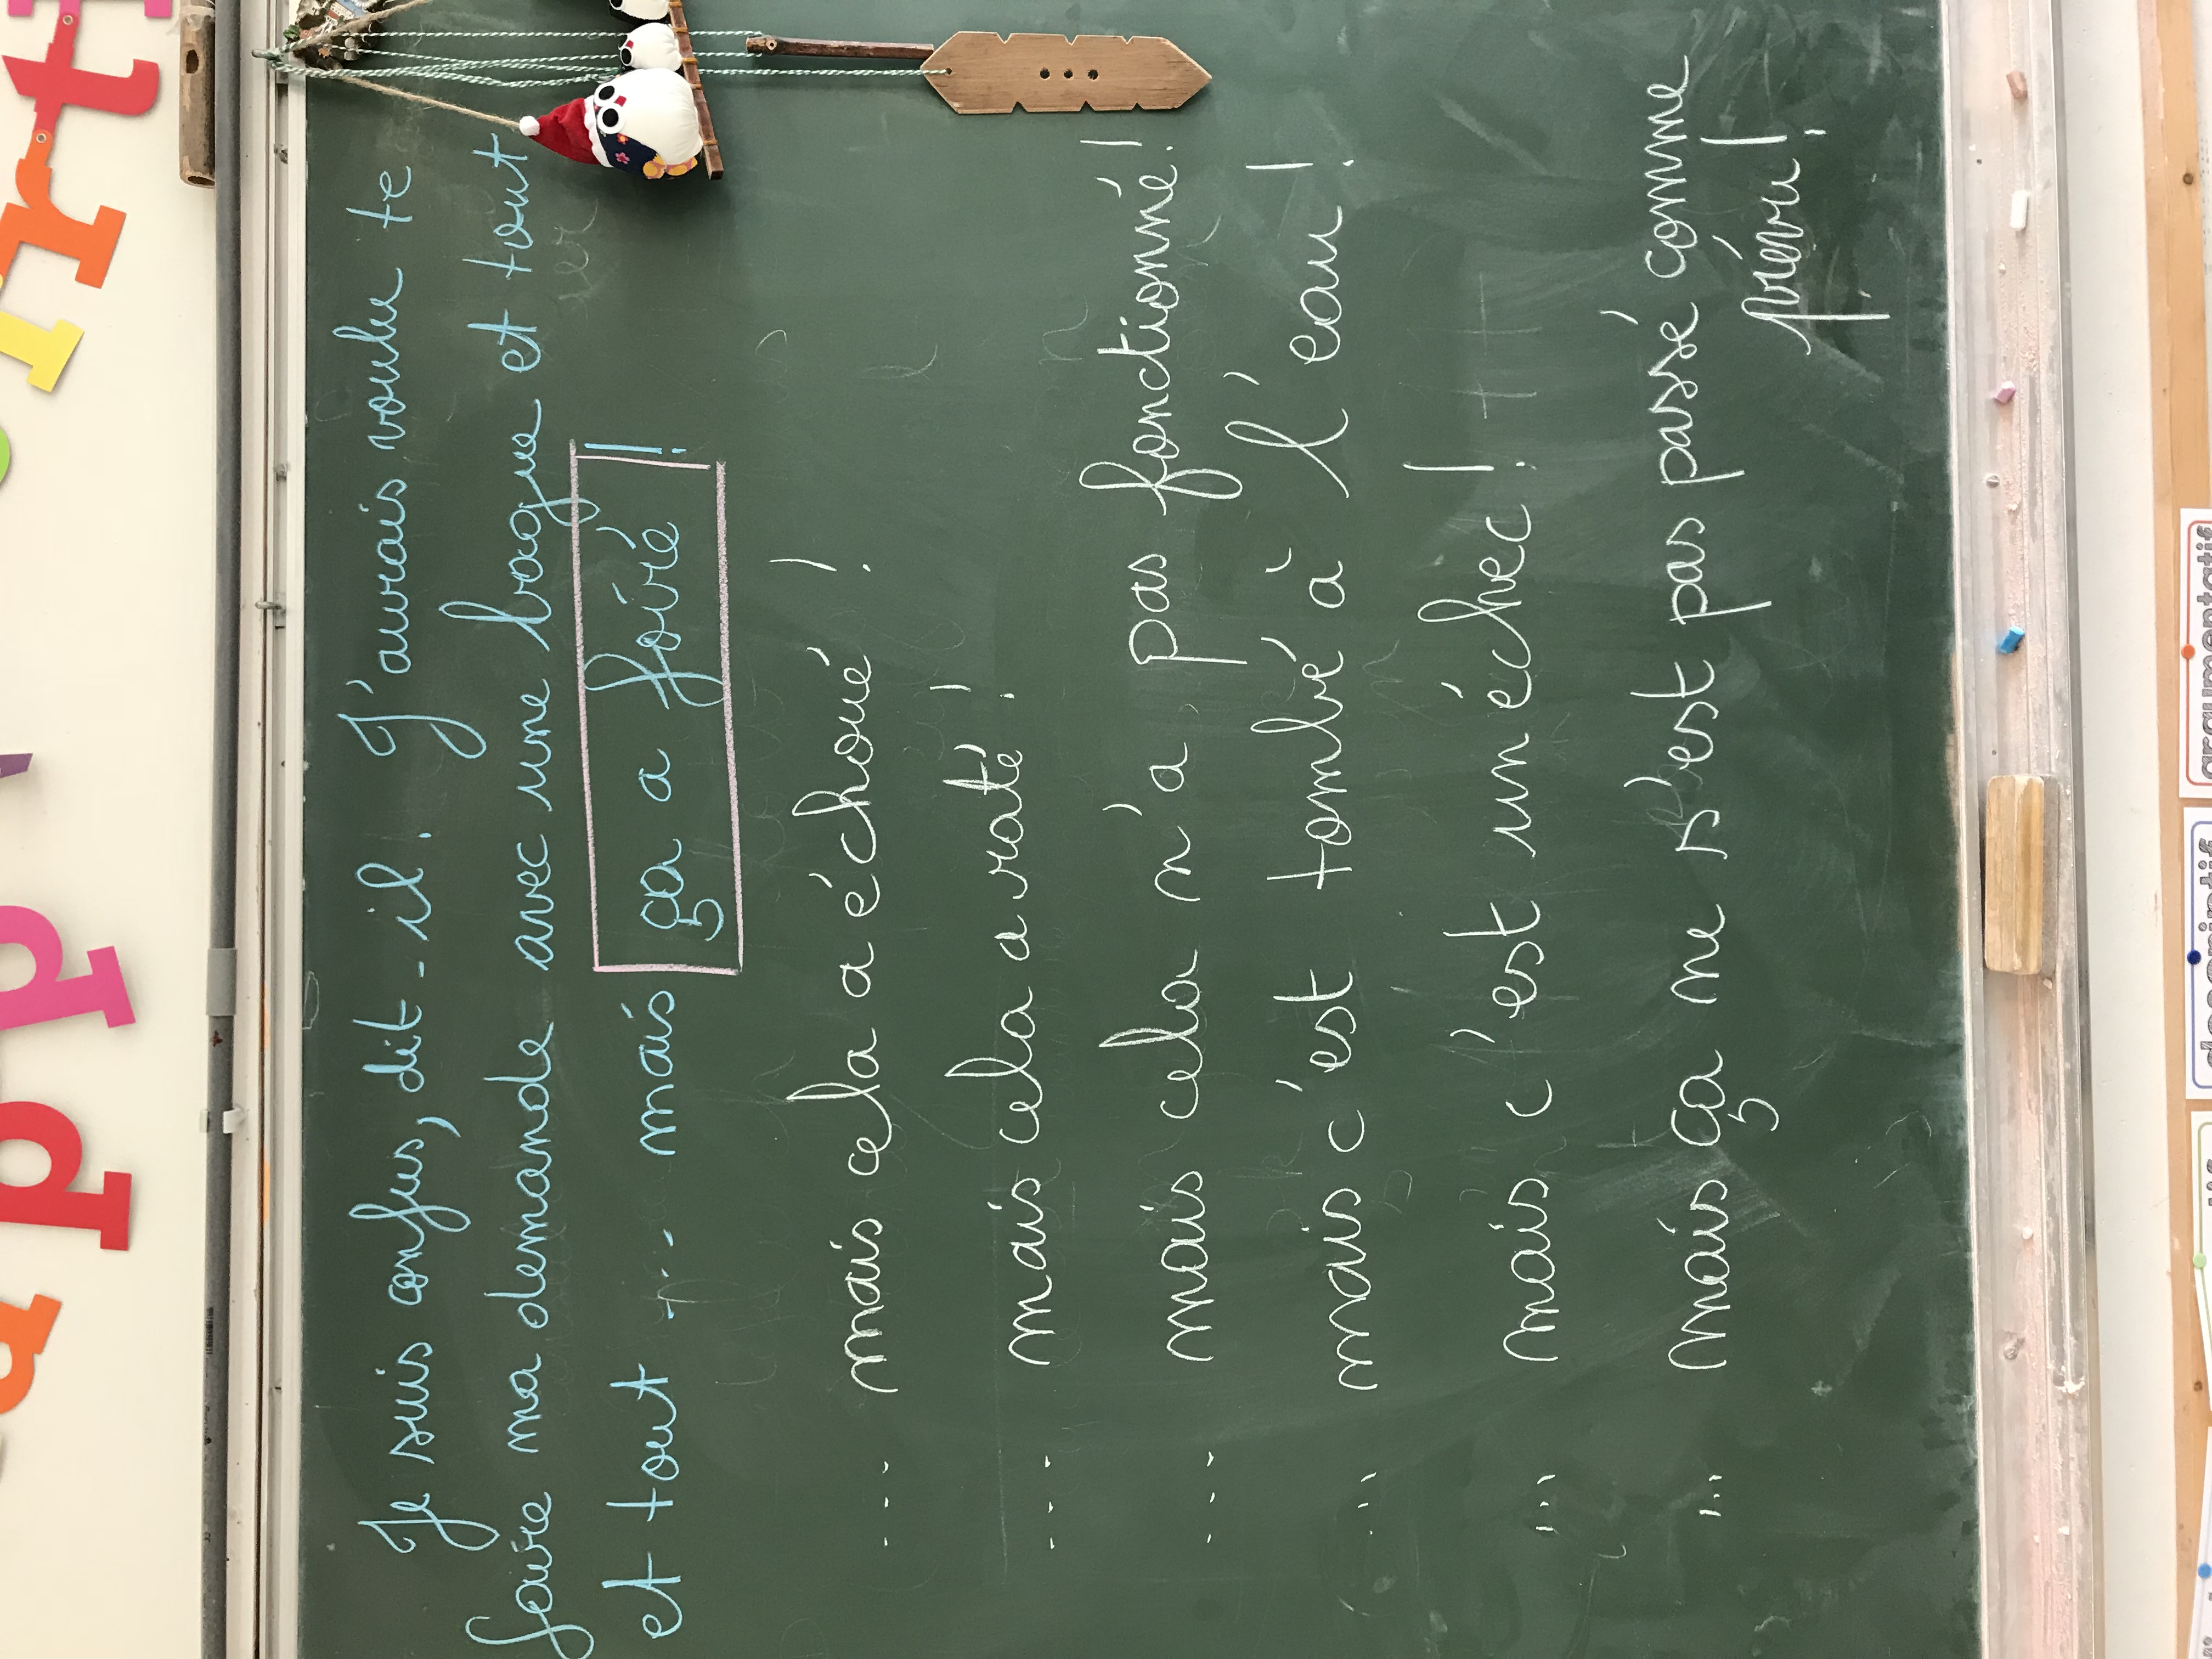 Je suis confus, dit-il. J'aurais voulu te
faire ma demande avec une bague et tout
et tout ... mais ça a foiré !
... mais cela a échoué !
... mais cela a raté !
... mais cela n'a pas fonctionné !
... mais c'est tombé à l'eau !
... mais c'est un échec !
... mais ça ne s'est pas passé comme
prévu !
argumentatif
descriptif